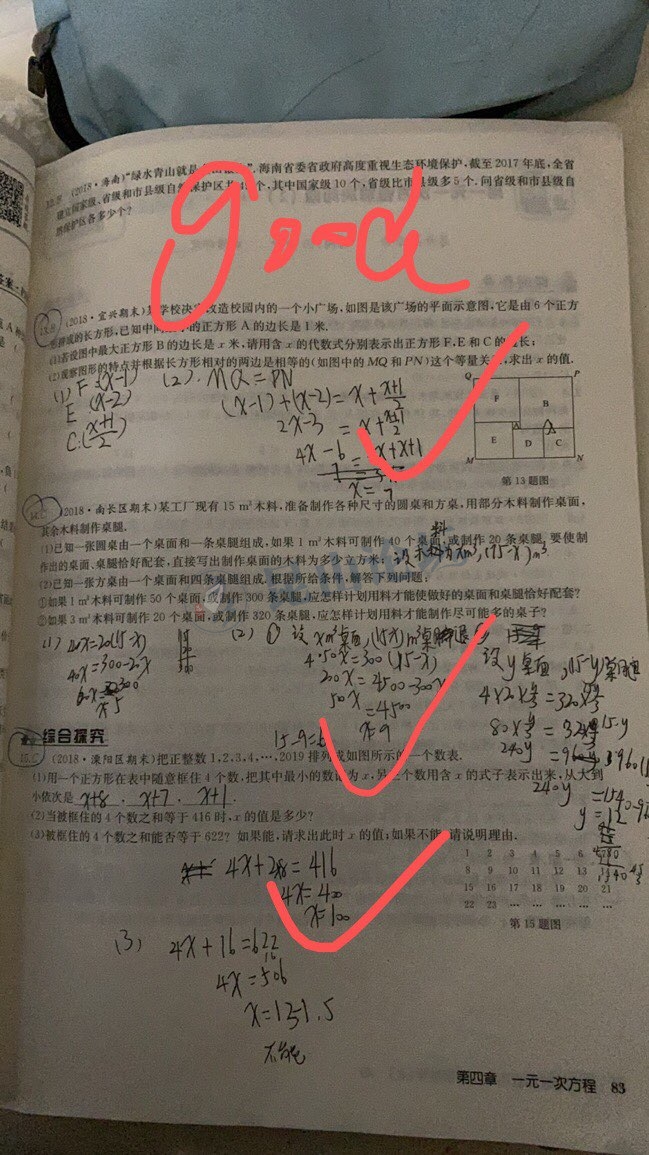 good
(2018·海南)"绿水青山就是
海南省委省政府高度重视生态环境保护,截至2017年底,全省
建立国家级、省级和市县级自然保护区共 个,其中国家级10个,省级比市县级多5个.问省级和市县级自
然保护区各多少个?
13.B (2018·宜兴期末)某学校决定改造校园内的一个小广场,如图是该广场的平面示意图,它是由6个正方
形拼成的长方形,已知中间 的正方形A的边长是1米.
(1)若设图中最大正方形B的边长是x米,请用含x的代数式分别表示出正方形F、E和C的边长;
(2)观察图形的特点并根据长方形相对的两边是相等的(如图中的MQ和PN)这个等量关系,求出x的值.
(1) F:(x-1)
E (x-2)
C:(x+1)/2
(2). MQ=PN
(x-1)+(x-2)=x+(x+1)/2
2x-3=x+(x+1)/2
4x-6=x+x+1
x=7
Q P
F B
A
E D C
M N
第13题图
14.C (2018·南长区期末)某工厂现有15 m³木料,准备制作各种尺寸的圆桌和方桌,用部分木料制作桌面,
其余木料制作桌腿.
(1)已知一张圆桌由一个桌面和一条桌腿组成,如果1 m³木料可制作40个桌面,或制作20条桌腿,要使制
作出的桌面、桌腿恰好配套,直接写出制作桌面的木料为多少立方米;
(2)已知一张方桌由一个桌面和四条桌腿组成.根据所给条件,解答下列问题:
①如果1 m³木料可制作50个桌面,或制作300条桌腿,应怎样计划用料才能使做好的桌面和桌腿恰好配套?
②如果3 m³木料可制作20个桌面,或制作320条桌腿,应怎样计划用料才能制作尽可能多的桌子?
(1) 40x=20(15-x)
40x=300-20x
x=5
(2) ① 设 xm³桌面,(15-x)m³桌腿
4·50x=300(15-x)
200x=4500-300x
50x=4500
x=9
15-9=6
设y桌面,15-y桌腿
240y
y=12
综合探究
15.C (2018·溧阳区期末)把正整数1,2,3,4,…,2019排列成如图所示的一个数表.
(1)用一个正方形在表中随意框住4个数,把其中最小的数记为x,另三个数用含x的式子表示出来,从大到
小依次是 x+8 . x+7 . x+1.
(2)当被框住的4个数之和等于416时,x的值是多少?
(3)被框住的4个数之和能否等于622?如果能,请求出此时x的值;如果不能,请说明理由.
4x+28=416
4x=400
x=100
1 2 3 4 5 6
8 9 10 11 12 13
15 16 17 18 19 20 21
22 23 … … … … …
第15题图
(3) 4x+16=622
4x=506
x=151.5
不能
第四章 一元一次方程 83